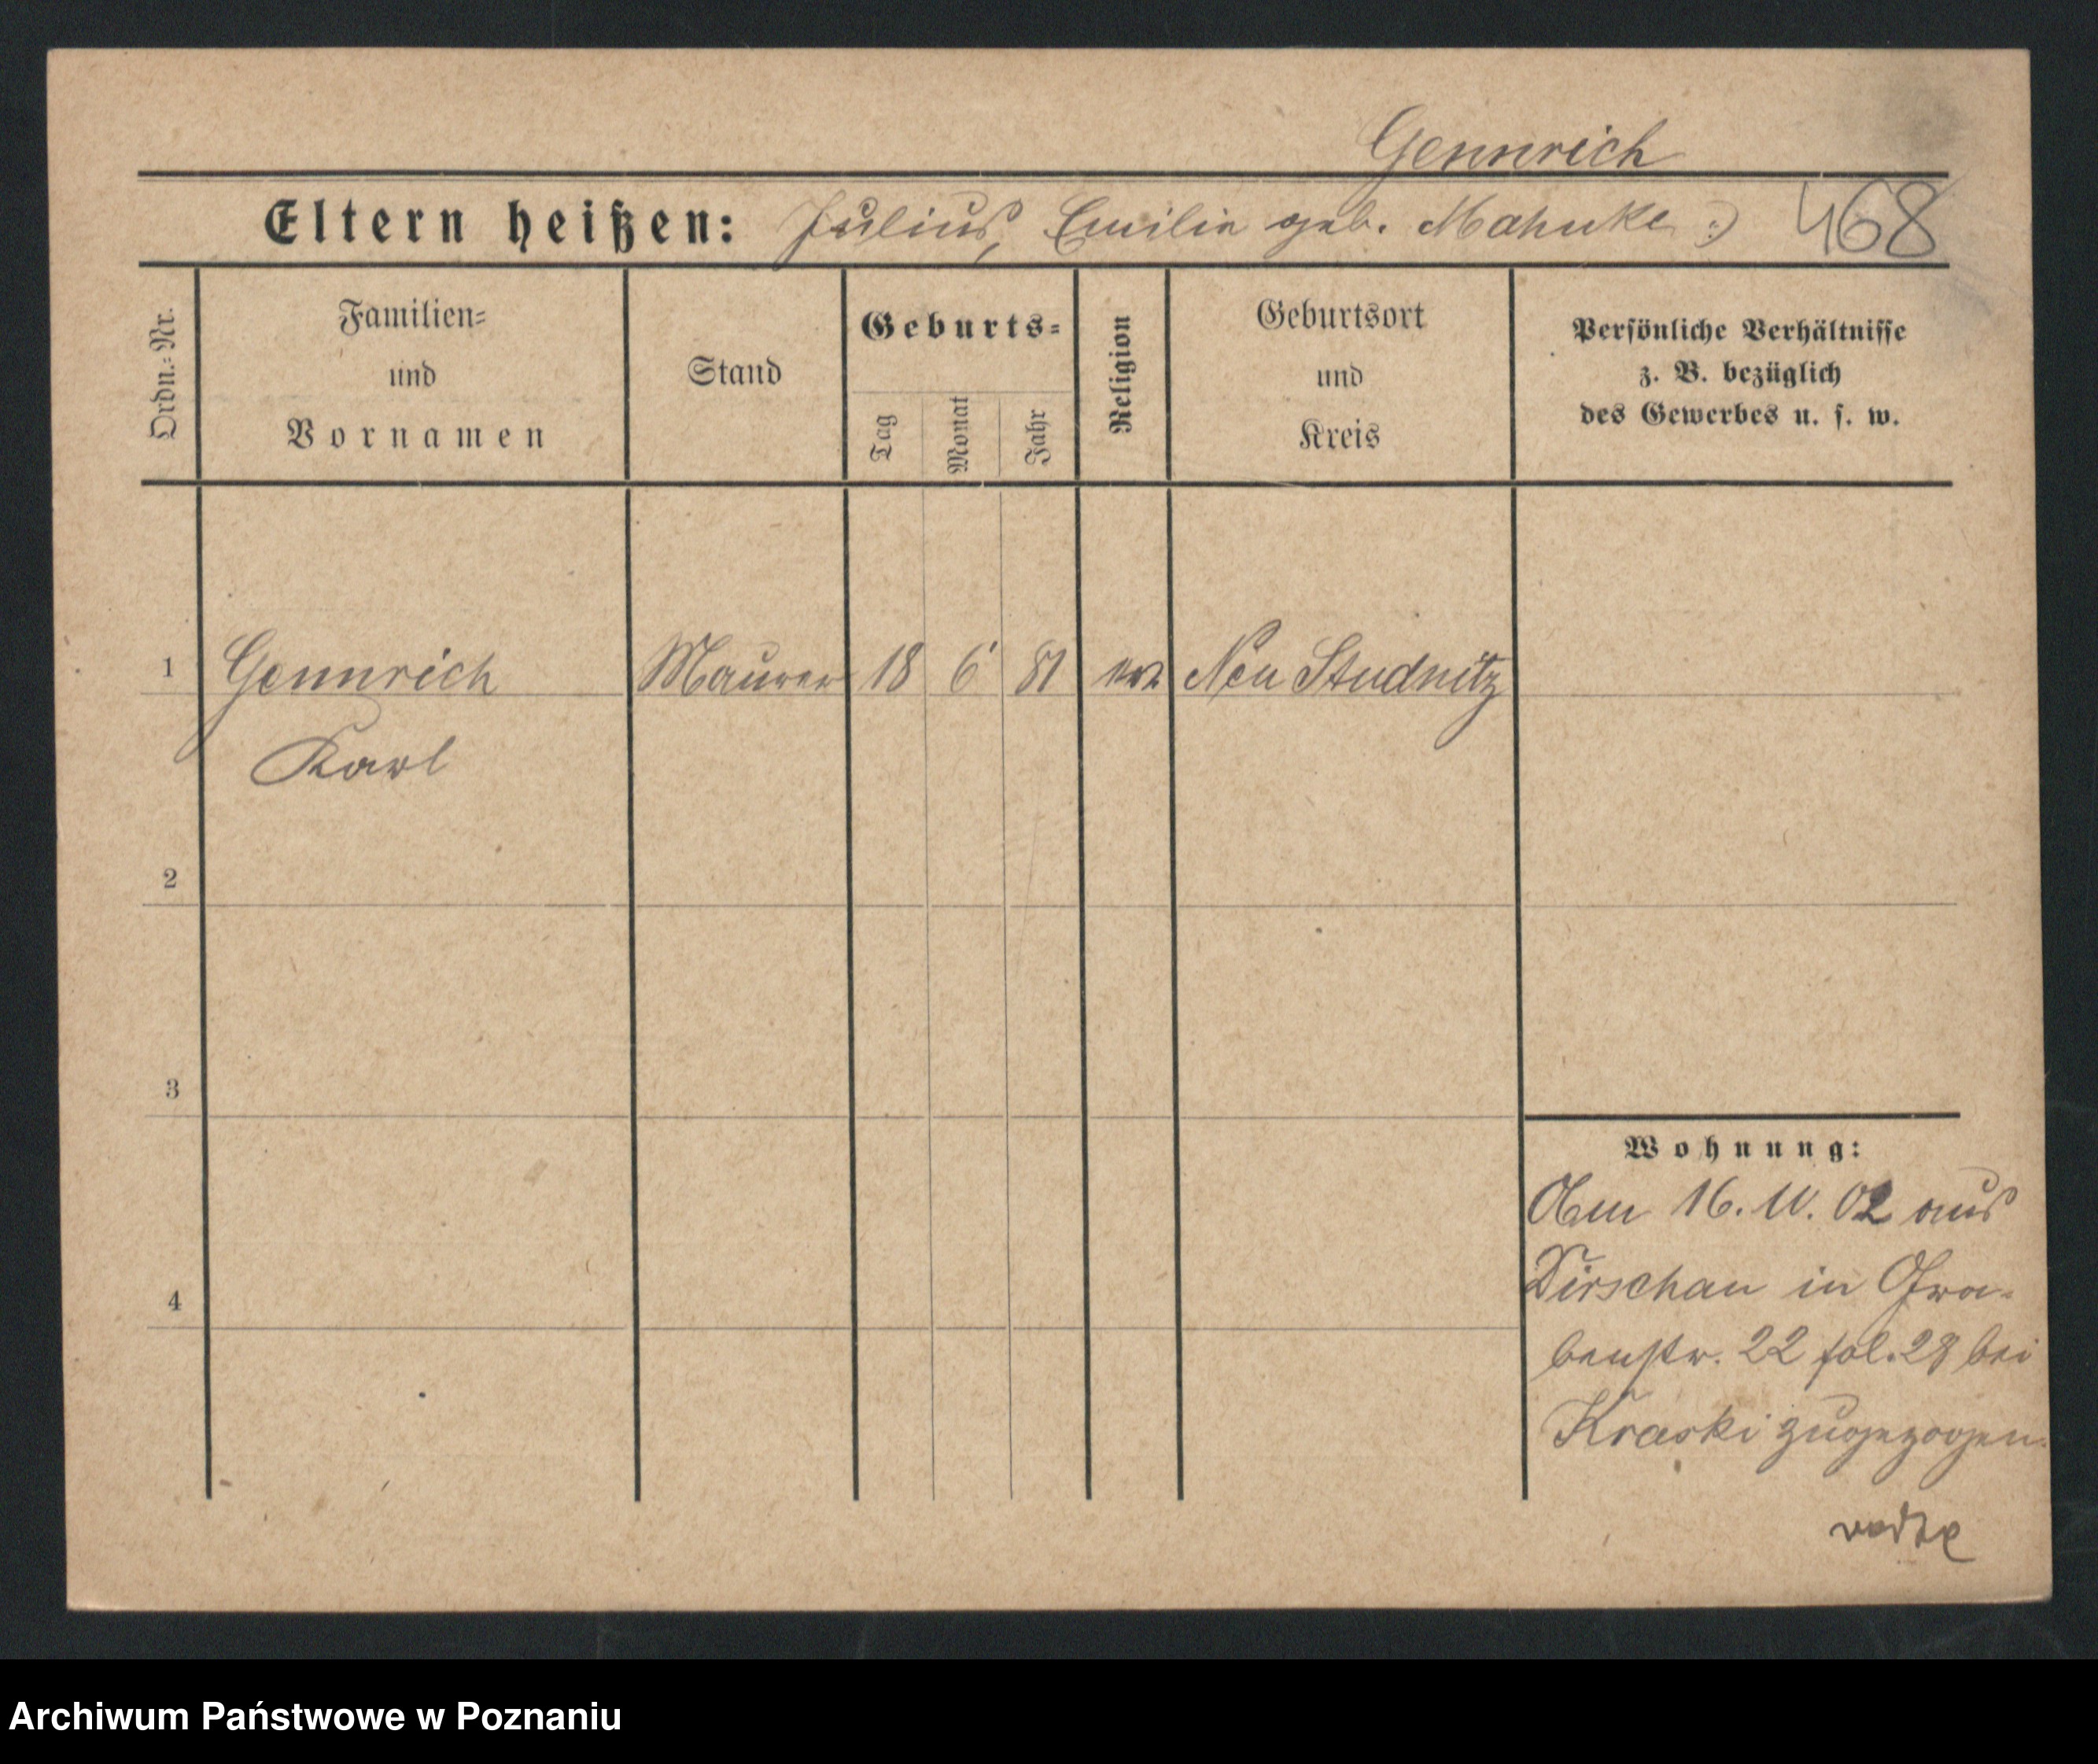 Gennrich
Eltern heißen: Julius, Emilie geb. Mahnke :) 468
Ordn.-Nr.
Familien-
und
Vornamen
Stand
Geburts-
Tag
Monat
Jahr
Religion
Geburtsort
und
Kreis
Persönliche Verhältnisse
z. B. bezüglich
des Gewerbes u. s. w.
1 Gennrich Maurer 18 6 81 Neu Studnitz
Karl
2
3
4
Wohnung:
Am 16. 11. 02 aus
Dirschau in Gra-
benstr. 22 fol. 28 bei
Kraski zugezogen.
Archiwum Państwowe w Poznaniu